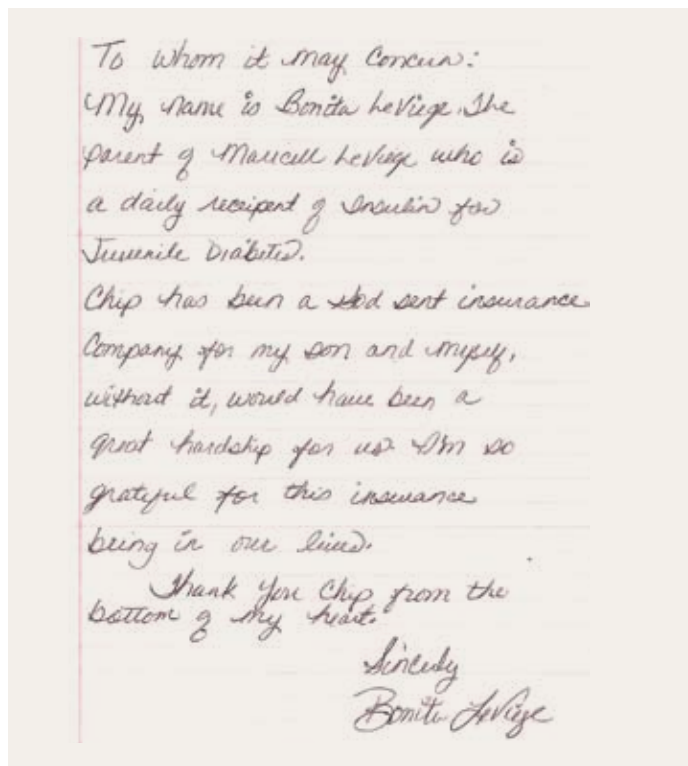 To whom it may Concern:
My name is Bonita LeViege. The
parent of Maricell LeViege who is
a daily recipent of Insulin for
Juvenile Diabetes.
Chip has been a God sent insurance
Company for my son and myself,
without it, would have been a
great hardship for us. I'm so
grateful for this insurance
being in our lives.
Thank You Chip from the
bottom of my heart.
Sincerly
Bonita LeViege